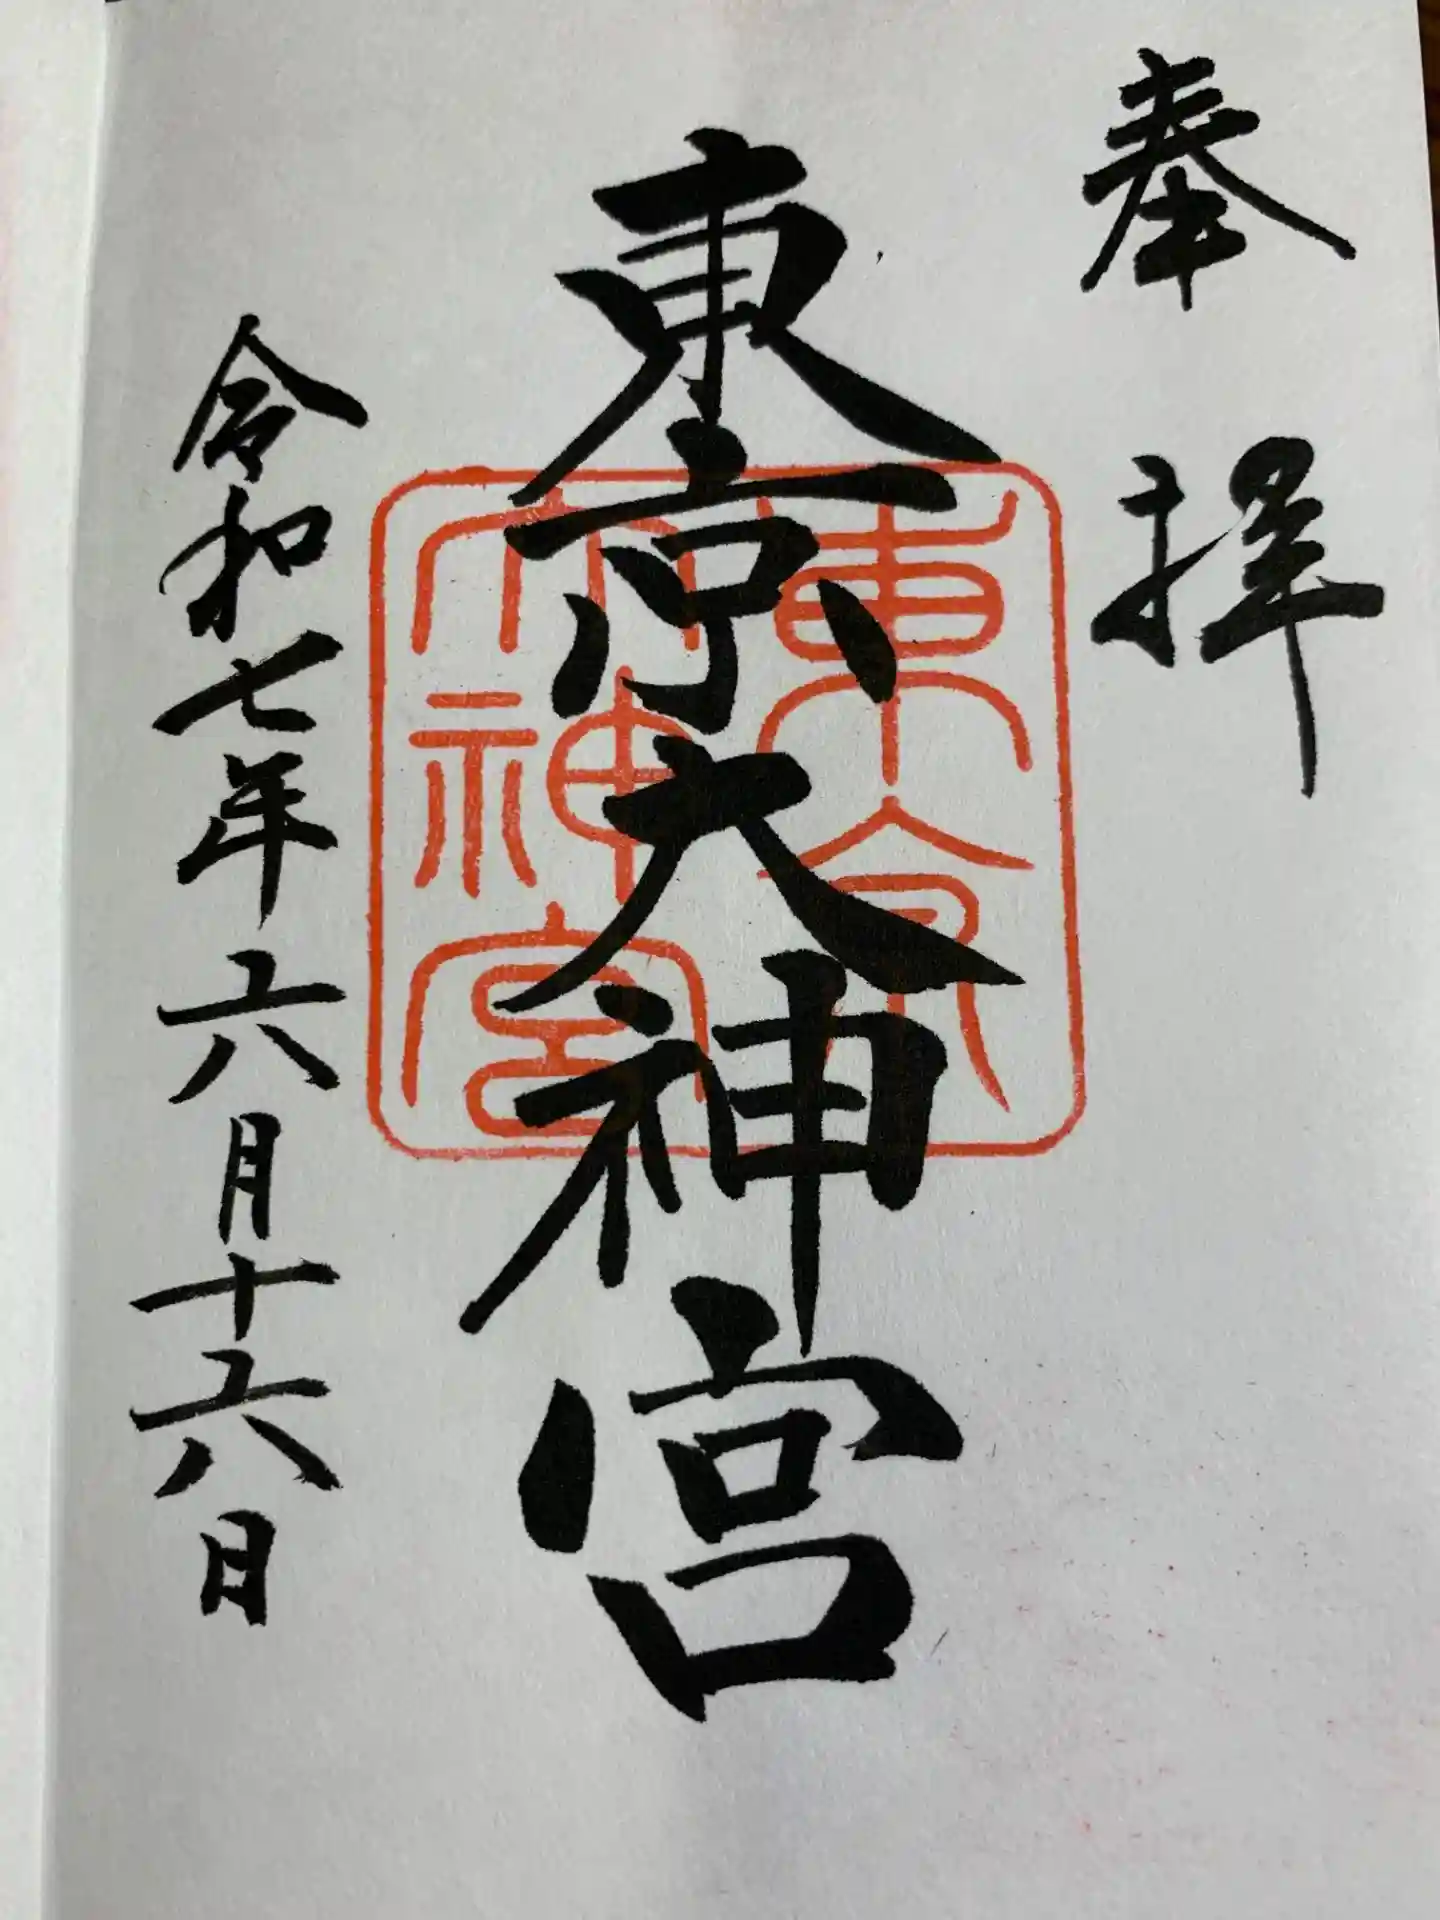 奉拝
東京大神宮
東京
大神宮
令和七年六月十六日